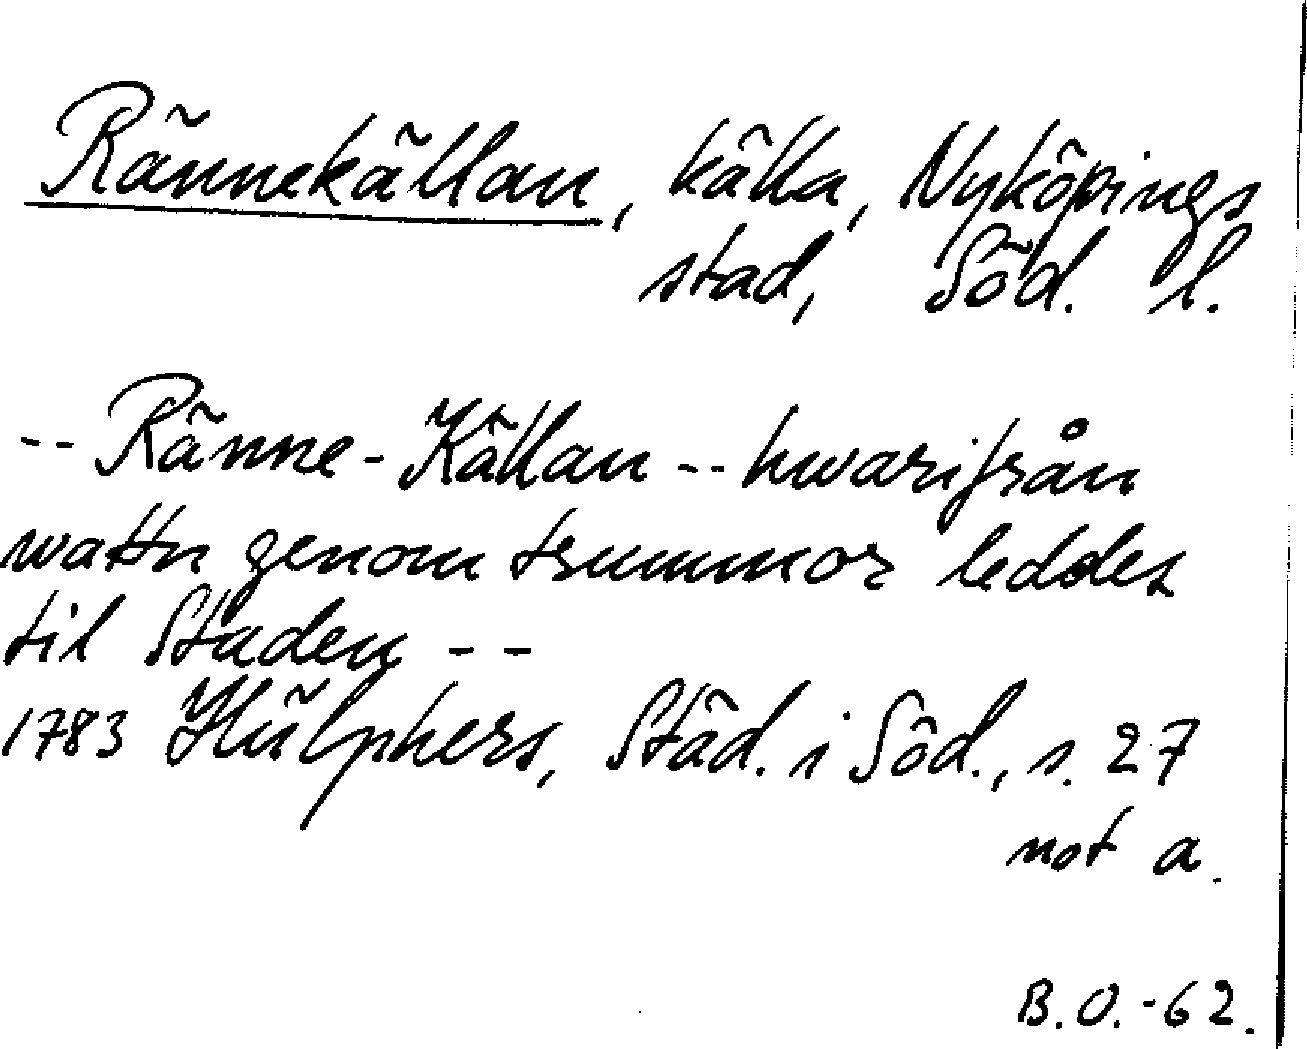 Rännekällan, källa, Nyköpings
stad, Söd. l.
-- Ränne-Källan -- hwarifrån
wattn genom trummor leddes
til Staden --
1783 Hülphers, Städ. i Söd., s. 27
not a.
B.O.-62.